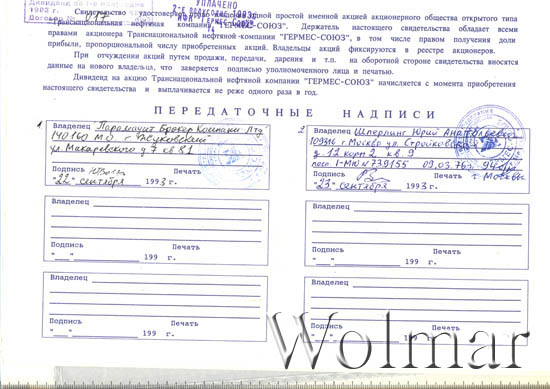 Дивиденд
1993 г.
Договор № 017
УПЛАЧЕНО
2-е полугодие 1993г.
"ГЕРМЕС-СОЮЗ"
Свидетельство удостоверяет право простой именной акцией акционерного общества открытого типа
Транснациональная нефтяная компания "ГЕРМЕС-СОЮЗ". Держатель настоящего свидетельства обладает всеми
правами акционера Транснациональной нефтяной компании "ГЕРМЕС-СОЮЗ", в том числе правом получения доли
прибыли, пропорциональную числу приобретенных акций. Владельцы акций фиксируются в реестре акционеров.
При отчуждении акций путем продажи, передачи, дарения и т.п. на оборотной стороне свидетельства вносятся
данные на нового владельца, что заверяется подписью уполномоченного лица и печатью.
Дивиденд на акцию Транснациональной нефтяной компании "ГЕРМЕС-СОЮЗ" начисляется с момента приобретения
настоящего свидетельства и выплачивается не реже одного раза в год.
ПЕРЕДАТОЧНЫЕ НАДПИСИ
1
Владелец Парамаунт Брокер Компани Лтд.
140160 М.О. г. Жуковский
ул. Макаревского д 7 кв 81
Подпись Печать
"22" сентября 1993 г.
2
Владелец Шперлинг Юрий Анатольевич
109316 г. Москва ул. Стройковская
д 12 корп 2 кв. 9
пасп I-МЮ № 739155 09.03.76г. 94
Подпись г. Москвы
"23" сентября 1993 г.
Владелец
Подпись Печать
"__"________ 199 г.
Владелец
Подпись Печать
"__"________ 199 г.
Владелец
Подпись Печать
"__"________ 199 г.
Владелец
Подпись Печать
"__"________ 199 г.
Wolmar